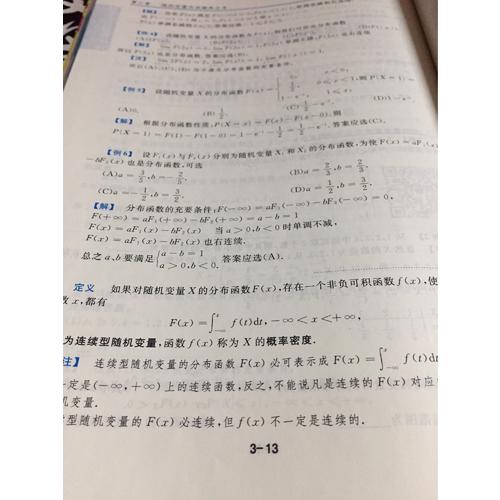 【例5】 设随机变量 X 的分布函数 F(x)= { 0, x<0, 1/2, 0≤x<1, 1-e^{-x}, x≥1, 则 P{X=1}=
(A)0. (B) 1/2. (C) 1/2 - e^{-1}. (D)1-e^{-1}.
【解】 根据分布函数性质, P{X=x}=F(x)-F(x-0), 则
P{X=1}=F(1)-F(1-0)=1-e^{-1}-1/2=1/2-e^{-1}. 答案应选(C).
【例6】 设 F₁(x)与 F₂(x)分别为随机变量 X₁ 和 X₂ 的分布函数,为使 F(x)=aF₁(x)
-bF₂(x)也是分布函数,可选
(A)a=3/5,b=-2/5. (B)a=2/3,b=2/3.
(C)a=-1/2,b=3/2. (D)a=1/2,b=3/2.
【解】 分布函数的充要条件:F(-∞)=aF₁(-∞)-bF₂(-∞)=0,
F(+∞)=aF₁(+∞)-bF₂(+∞)=a-b=1
F(x)=aF₁(x)-bF₂(x) 当 a>0,b<0 时单调不减,
F(x)=aF₁(x)-bF₂(x)也右连续.
总之 a、b 要满足 { a-b=1 a>0,b<0. 答案应选(A).
定义 如果对随机变量 X 的分布函数 F(x),存在一个非负可积函数 f(x),使
数 x,都有
F(x)=∫_{-∞}^{x} f(t)dt,-∞<x<+∞,
为连续型随机变量,函数 f(x)称为 X 的概率密度.
注】 连续型随机变量的分布函数 F(x)必可表示成 F(x)=∫_{-∞}^{x} f(t)dt
一定是(-∞,+∞)上的连续函数,反之,不能说凡是连续的 F(x)对应
机变量.
型随机变量的 F(x)必连续,但 f(x)不一定是连续的.
3-13